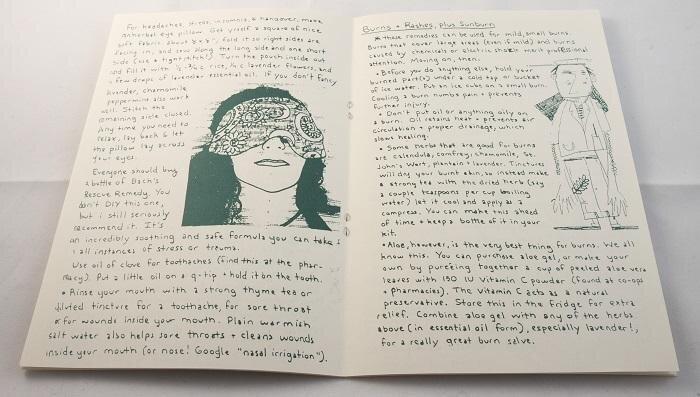 For headaches, stress, insomnia, & hangover, make
an herbal eye pillow. Get yrself a square of nice
soft fabric, about 8"x8", fold it so right sides are
facing in, and sew along the long side and one short
side (use a tight stitch!). Turn the pouch inside out
and fill it with rice, lavender flowers, and
a few drops of lavender essential oil. If you don't fancy
lavender, chamomile,
peppermint also work
well. Stitch the
remaining side closed.
Any time you need to
relax, lay back & let
the pillow lay across
your eyes.
Everyone should buy
a bottle of Bach's
Rescue Remedy. You
don't DIY this one,
but i still seriously
recommend it. It's
an incredibly soothing and safe formula you can take
in all instances of stress or trauma.
Use oil of clove for toothaches (find this at the phar-
macy). Put a little oil on a q-tip + hold it on the tooth.
• Rinse your mouth with a strong thyme tea or
diluted tincture for a toothache, for sore throat
or for wounds inside your mouth. Plain warmish
salt water also helps sore throats + cleans wounds
inside your mouth (or nose! Google "nasal irrigation").
Burns + Rashes, plus Sunburn
* these remedies can be used for mild, small burns.
Burns that cover large areas (even if mild) and burns
caused by chemicals or electric shock merit professional
attention. Moving on, then:
• Before you do anything else, hold your
burned part(s) under a cold tap or bucket
of ice water. Put an ice cube on a small burn.
Cooling a burn numbs pain + prevents
further injury.
• Don't put oil or anything oily on
a burn. Oil retains heat + prevents air
circulation + proper drainage, which
slows healing.
• Some herbs that are good for burns
are calendula, comfrey, chamomile, St.
John's Wort, plantain + lavender. Tinctures
will dry your burnt skin, so instead make
a strong tea with the dried herb (say
a couple teaspoons per cup boiling
water) let it cool and apply as a
compress. You can make this ahead
of time + keep a bottle of it in your
kit.
• Aloe, however, is the very best thing for burns. We all
know this. You can purchase aloe gel, or make your
own by pureéing together a cup of peeled aloe vera
leaves with IU vitamin C powder (found at co-ops
+ pharmacies). The vitamin C acts as a natural
preservative. Store this in the fridge for extra
relief. Combine aloe gel with any of the herbs
above (in essential oil form), especially lavender!,
for a really great burn salve.